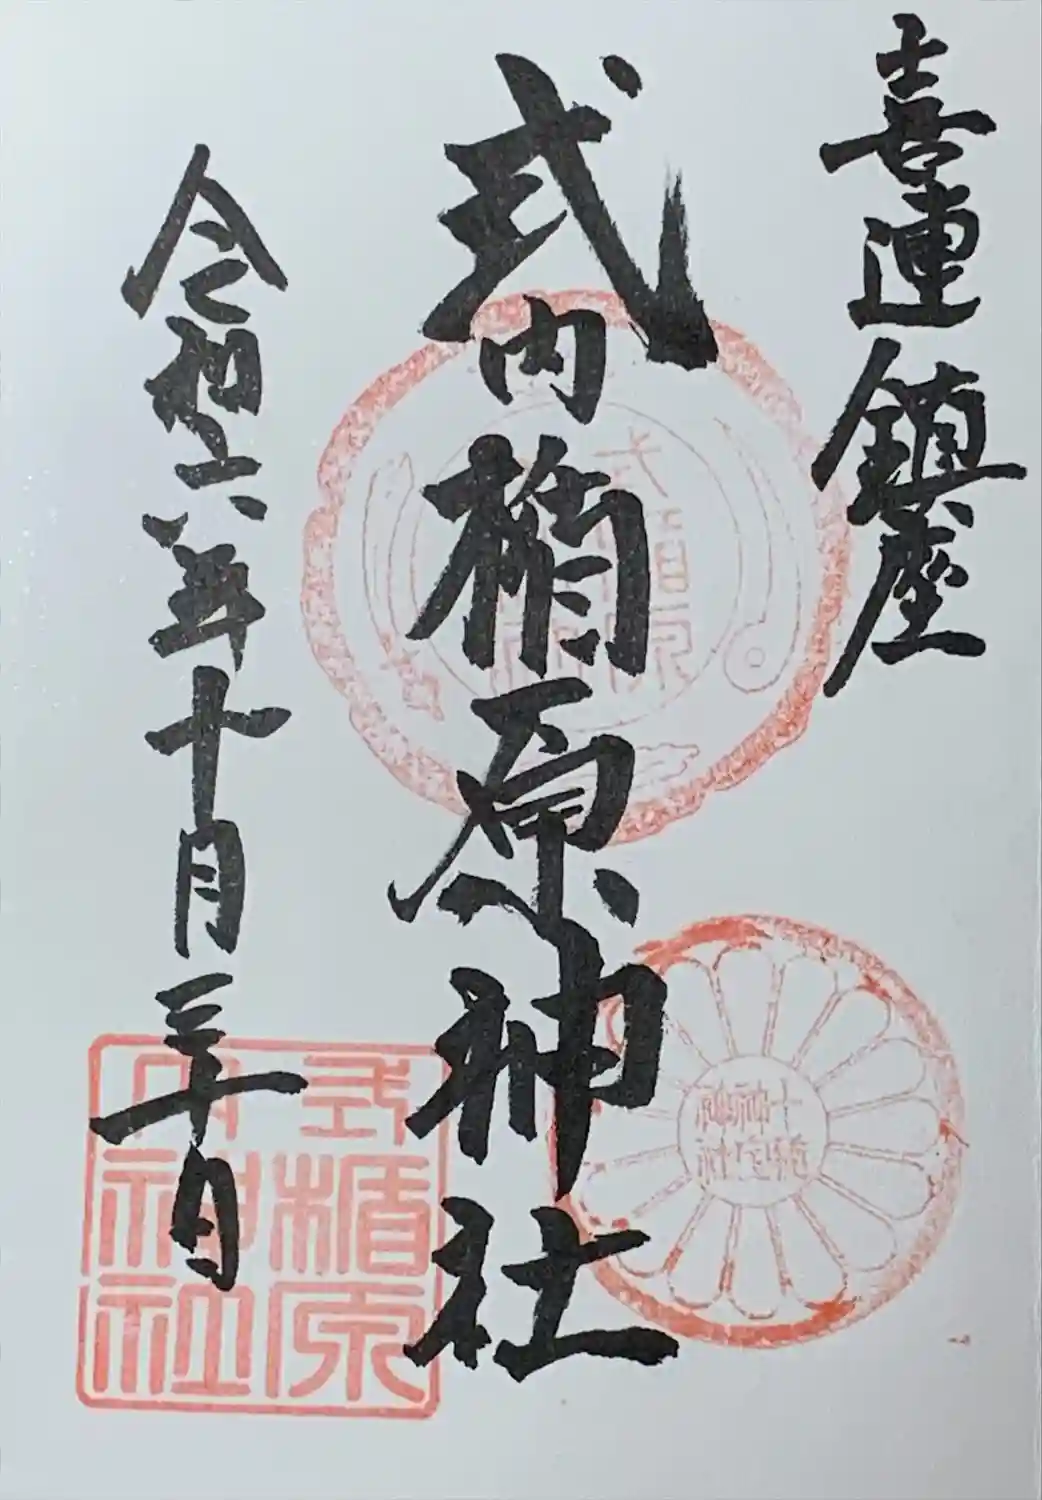 喜連鎮座
式内楯原神社
令和六年十月三十日
式楯原
内神社